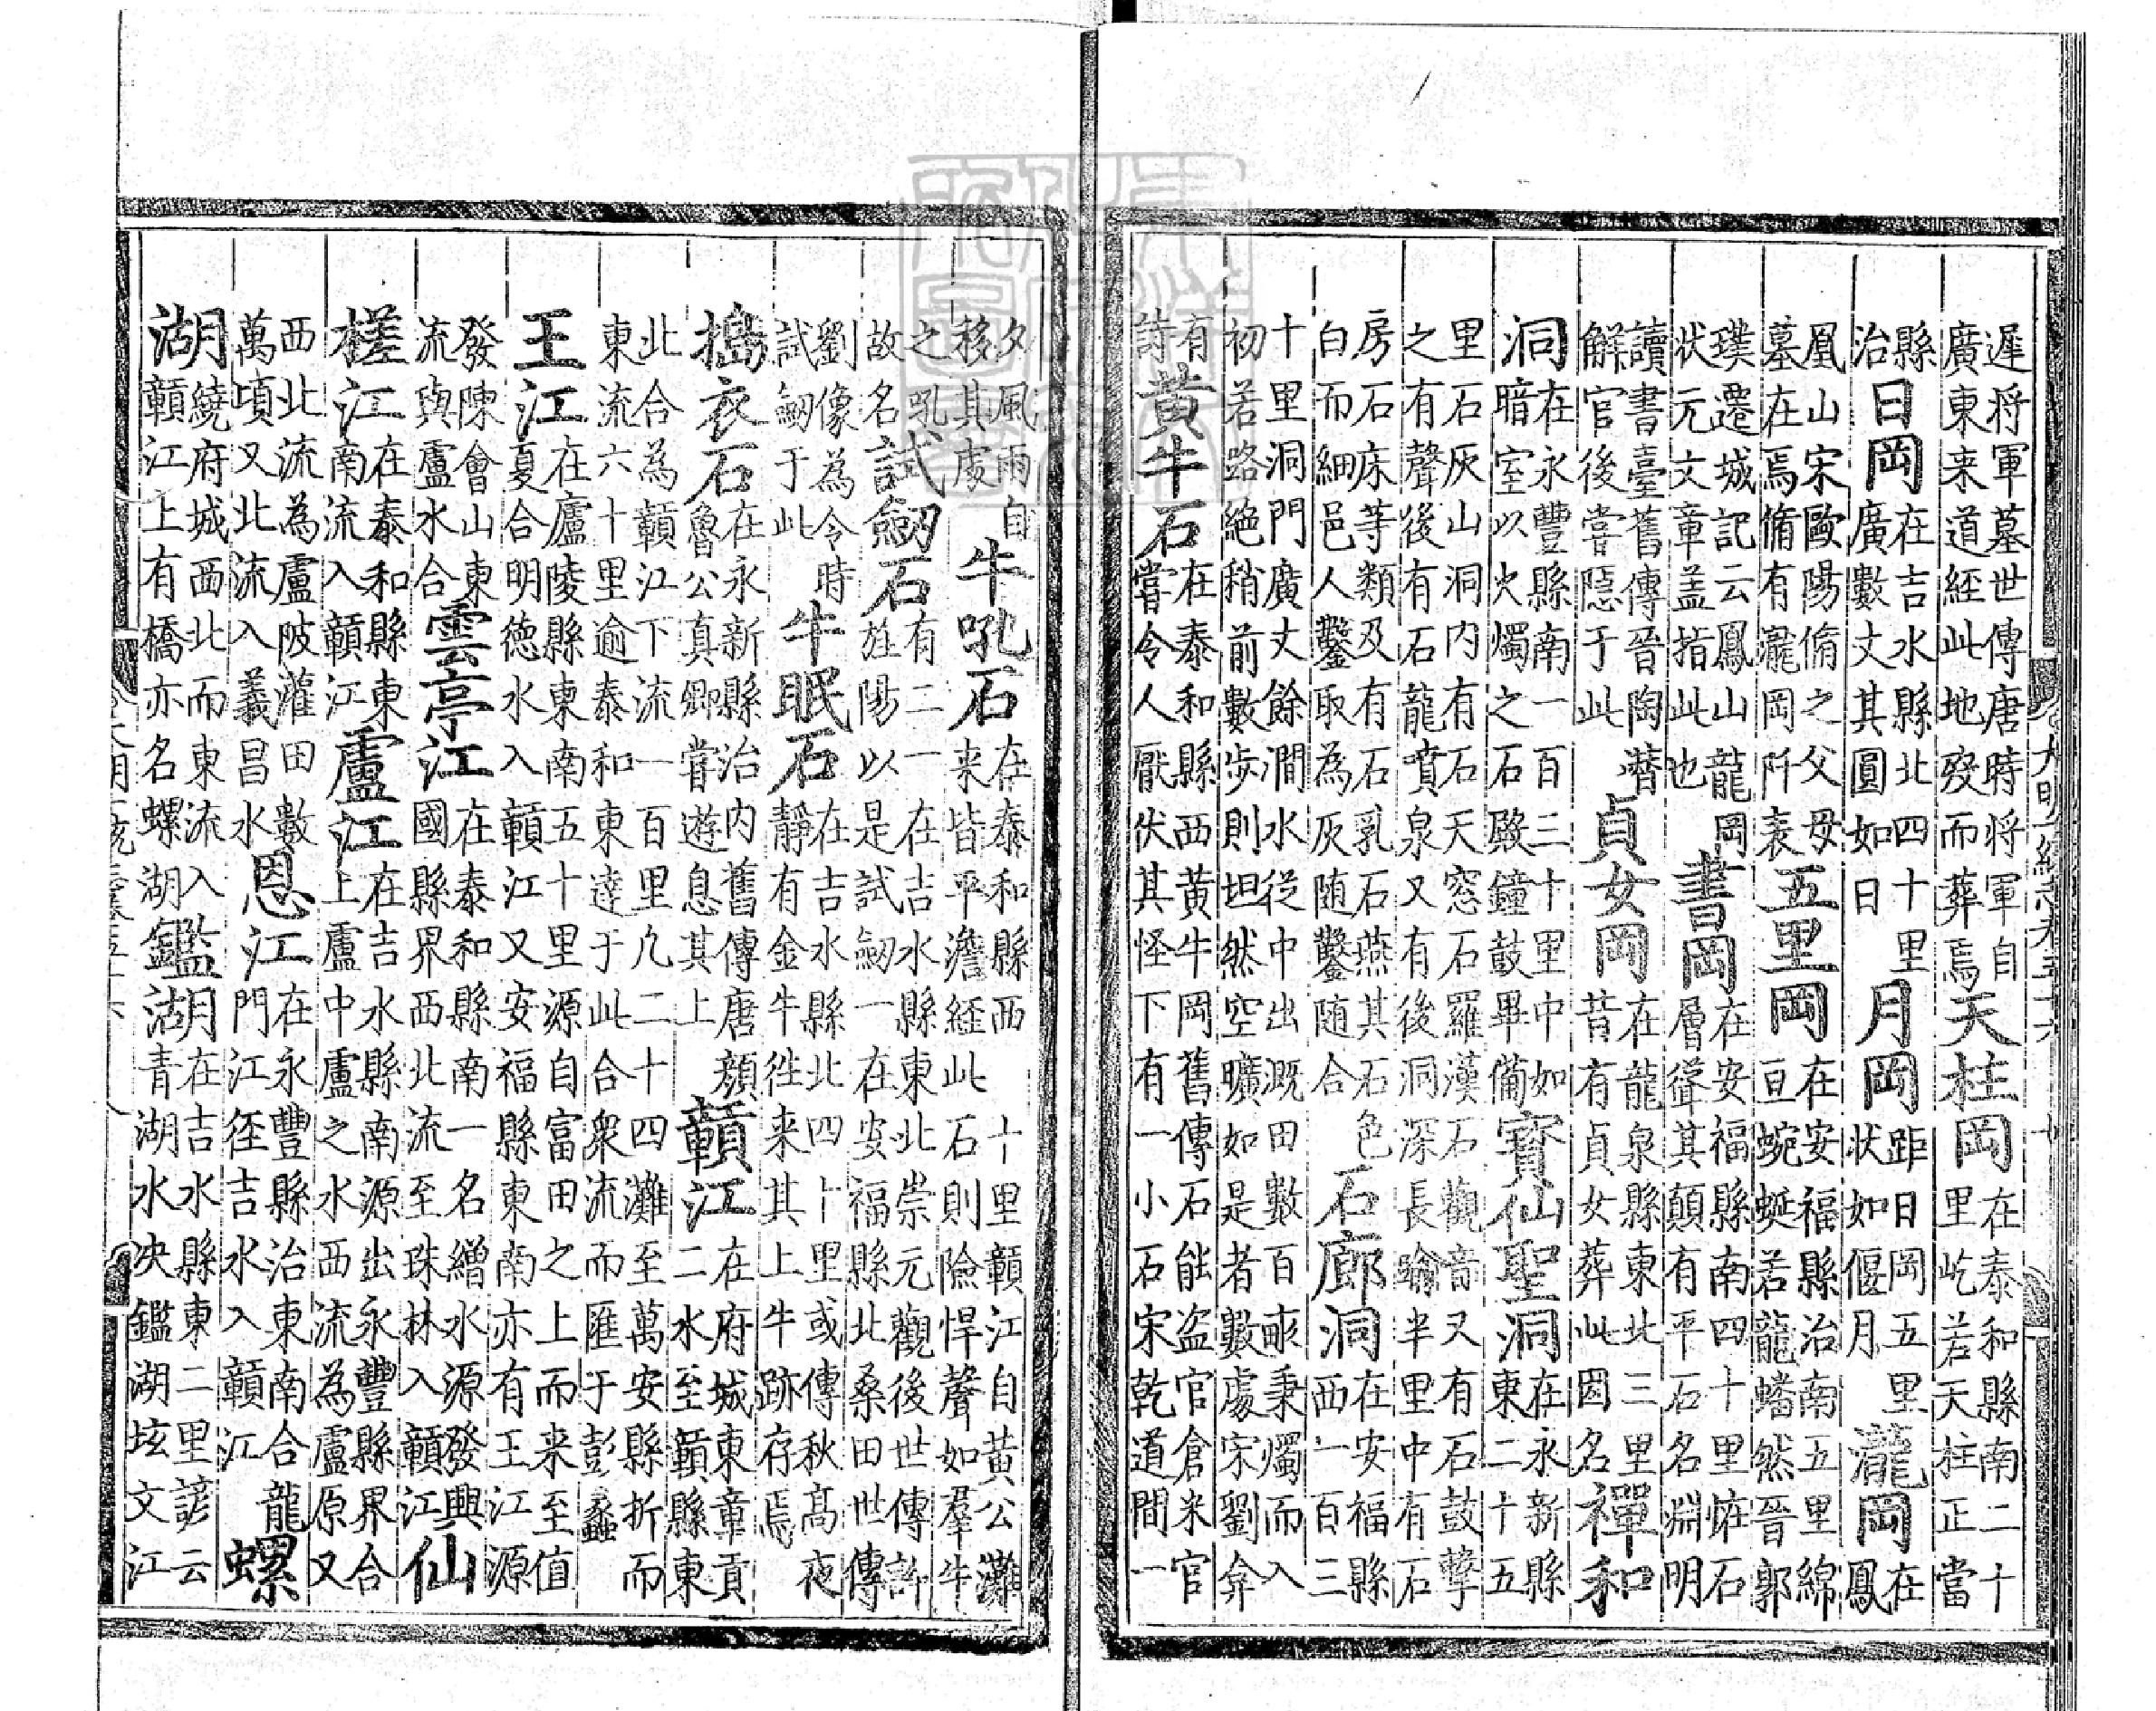 遲将軍墓世傳唐時将軍自廣東来道經此地歿而葬焉天柱岡在泰和縣南二十里屹若天柱正當
縣治日岡在吉水縣北四十里廣數丈其圓如日月岡距日岡五里状如偃月瀧岡在鳳
凰山宋歐陽脩之父母墓在焉脩有瀧岡阡表五里岡在安福縣治南五里綿亘蜿蜒若龍蟠然晉郭
璞遷城記云鳳山龍岡状元文章盖指此也書岡在安福縣南四十里石層聳其顛有平石名淵明
讀書臺舊傳晉陶潜解官後嘗隠于此貞女岡在龍泉縣東北三里昔有貞女葬此因名禪和
洞在永豐縣南一百三十里中如暗室以火燭之石鐘鼓畢備寳仙聖洞在永新縣東二十五
里石灰山洞内有石天窓石羅漢石觀音又有石鼓擊之有聲後有石龍噴泉又有後洞深長踰半里中有石
房石床等類及有石乳石燕其石色白而細邑人鑿取為灰随鑿随合石廊洞在安福縣西一百三
十里洞門廣丈餘澗水従中出溉田數百畝秉燭而入初若路絶稍前數歩則坦然空曠如是者數處宋劉弇
有詩黄牛石在泰和縣西黄牛岡舊傳石能盗官倉米官嘗令人厭伏其怪下有一小石宋乾道間一
夕風雨自移其處牛吼石在泰和縣西十里贛江自黄公灘来皆平澹經此石則險悍聲如羣牛
之吼故名試劒石有二一在吉水縣東北崇元觀後世傳許旌陽以是試劒一在安福縣北桑田世傳
劉像為令時試劒于此牛眠石在吉水縣北四十里或傳秋髙夜静有金牛徃来其上牛跡存焉
搗衣石在永新縣治内舊傳唐顔魯公真卿嘗遊息其上贛江在府城東章貢二水至贛縣東
北合為贛江下流一百里凢二十四灘至萬安縣折而東流六十里逾泰和東達于此合衆流而匯于彭蠡
王江在廬陵縣東南五十里源自富田之上而来至值夏合明德水入贛江又安福縣東南亦有王江源
發陳會山東流與盧水合雲亭江在泰和縣南一名繒水源發興國縣界西北流至珠林入贛江仙
槎江在泰和縣東南流入贛江盧江在吉水縣南源出永豐縣界合上盧中盧之水西流為盧原又
西北流為盧陂灌田數萬頃又北流入義昌水恩江在永豐縣治東南合龍門江徑吉水入贛江螺
湖繞府城西北而東流入贛江上有橋亦名螺湖鑑湖在吉水縣東二里諺云青湖水决鑑湖坡文江